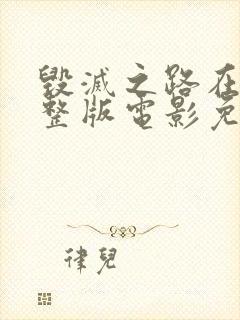 毀滅之路在
整版電影免
律兒